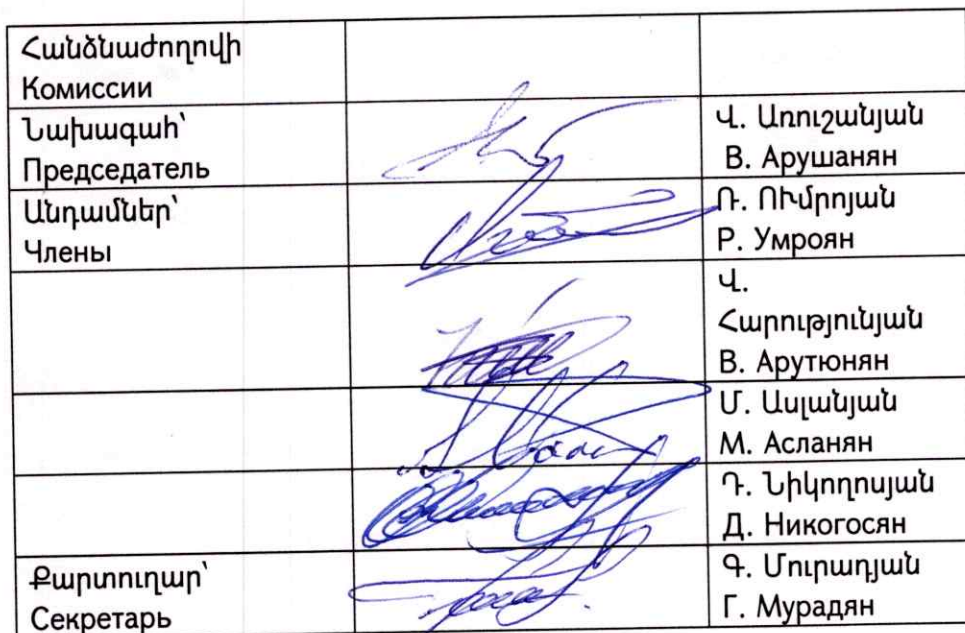 Հանձնաժողովի
Комиссии
Նախագահ՝
Председатель
Վ. Առուշանյան
В. Арушанян
Անդամներ՝
Члены
Ռ. ՈՒմրոյան
Р. Умроян
Վ.
Հարությունյան
В. Арутюнян
Մ. Ասլանյան
М. Асланян
Դ. Նիկողոսյան
Д. Никогосян
Քարտուղար՝
Секретарь
Գ. Մուրադյան
Г. Мурадян